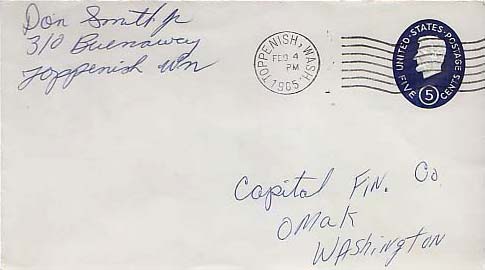 Don Smith Jr
310 Buenaway
Toppenish Wn
TOPPENISH, WASH.
FEB 4
PM
1965
UNITED·STATES·POSTAGE
FIVE 5 CENTS
Capital Fin. Co.
OMAK
WAShington